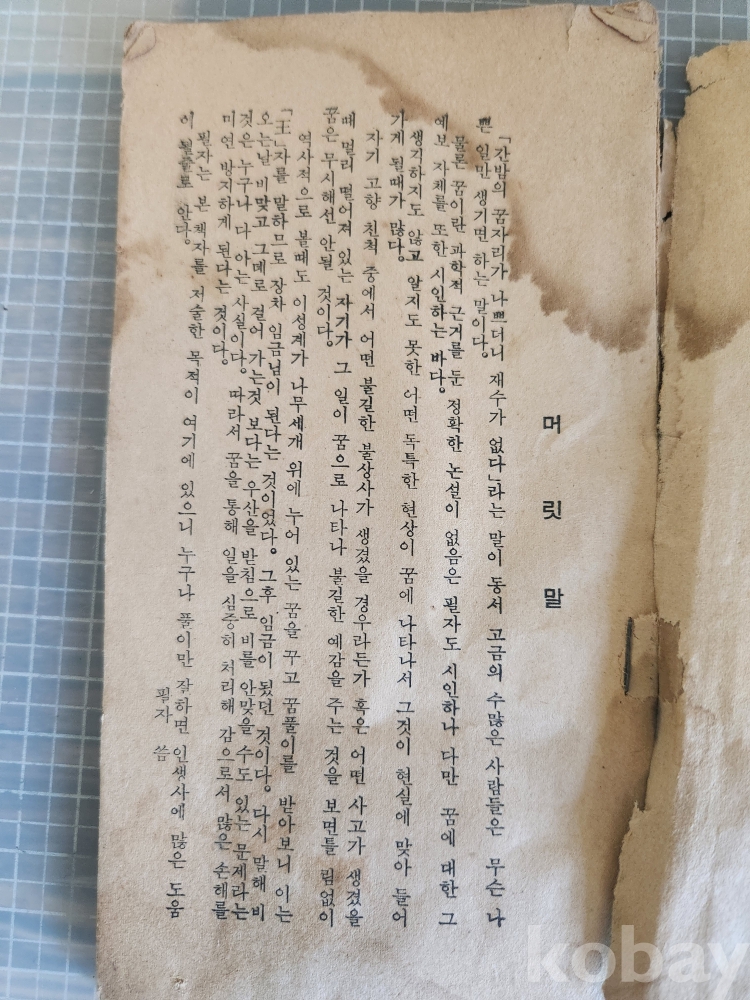 머릿말
「간밤의 꿈자리가 나쁘더니 재수가 없다」라는 말이 동서 고금의 수많은 사람들은 무슨 나
쁜 일만 생기면 하는 말이다.
물론 꿈이란 과학적 근거를 둔 정확한 논설이 없음은 필자도 시인하나 다만 꿈에 대한 그
예보 자체를 또한 시인하는 바다.
생각하지도 않고 알지도 못한 어떤 독특한 현상이 꿈에 나타나서 그것이 현실에 맞아 들어
가게 될때가 많다.
자기 고향 친척 중에서 어떤 불길한 불상사가 생겼을 경우라든가 혹은 어떤 사고가 생겼을
때 멀리 떨어져 있는 자기가 그 일이 꿈으로 나타나 불길한 예감을 주는 것을 보면틀 림없이
꿈은 무시해선 안될 것이다.
역사적으로 볼때도 이성계가 나무세개 위에 누어 있는 꿈을 꾸고 꿈풀이를 받아보니 이는
「王」자를 말하므로 장차 임금님이 된다는 것이었다. 그후 임금이 됬던 것이다. 다시 말해 비
오는날 비맞고 그데로 걸어 가는것 보다는 우산을 받침으로 비를 안맞을 수도 있는 문제라는
것은 누구나 다 아는 사실이다. 따라서 꿈을 통해 일을 심중히 처리해 감으로서 많은 손해를
미연 방지하게 된다는 것이다.
필자는 본 책자를 저술한 목적이 여기에 있으니 누구나 풀이만 잘하면 인생사에 많은 도움
이 될줄로 안다.
필자 씀
kobay